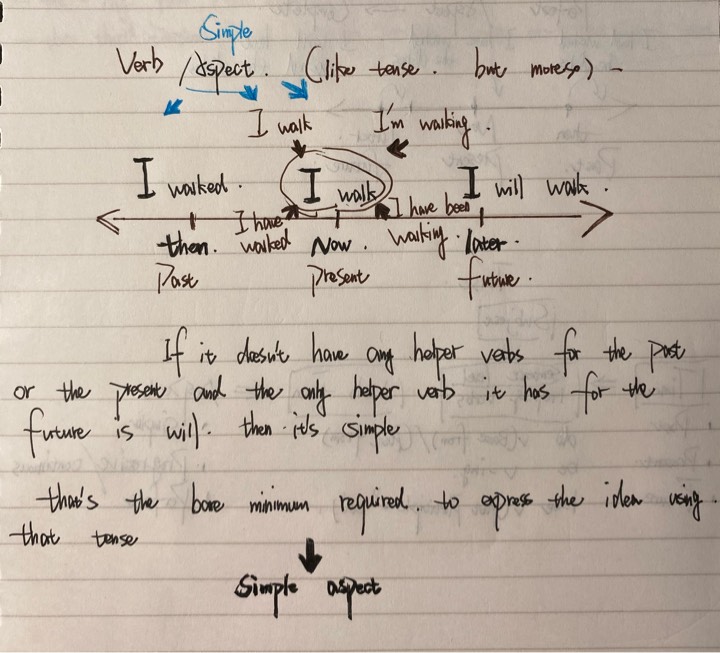 Simple
Verb /aspect. (like tense. but moreso) -
I walk I'm walking.
I walked. I walk I will walk.
I have walked I have been walking.
then. Now. later.
Past present future.
If it doesn't have any helper verbs for the past
or the present and the only helper verb it has for the
future is will. then it's simple
that's the bare minimum required. to express the idea using.
that tense
Simple aspect